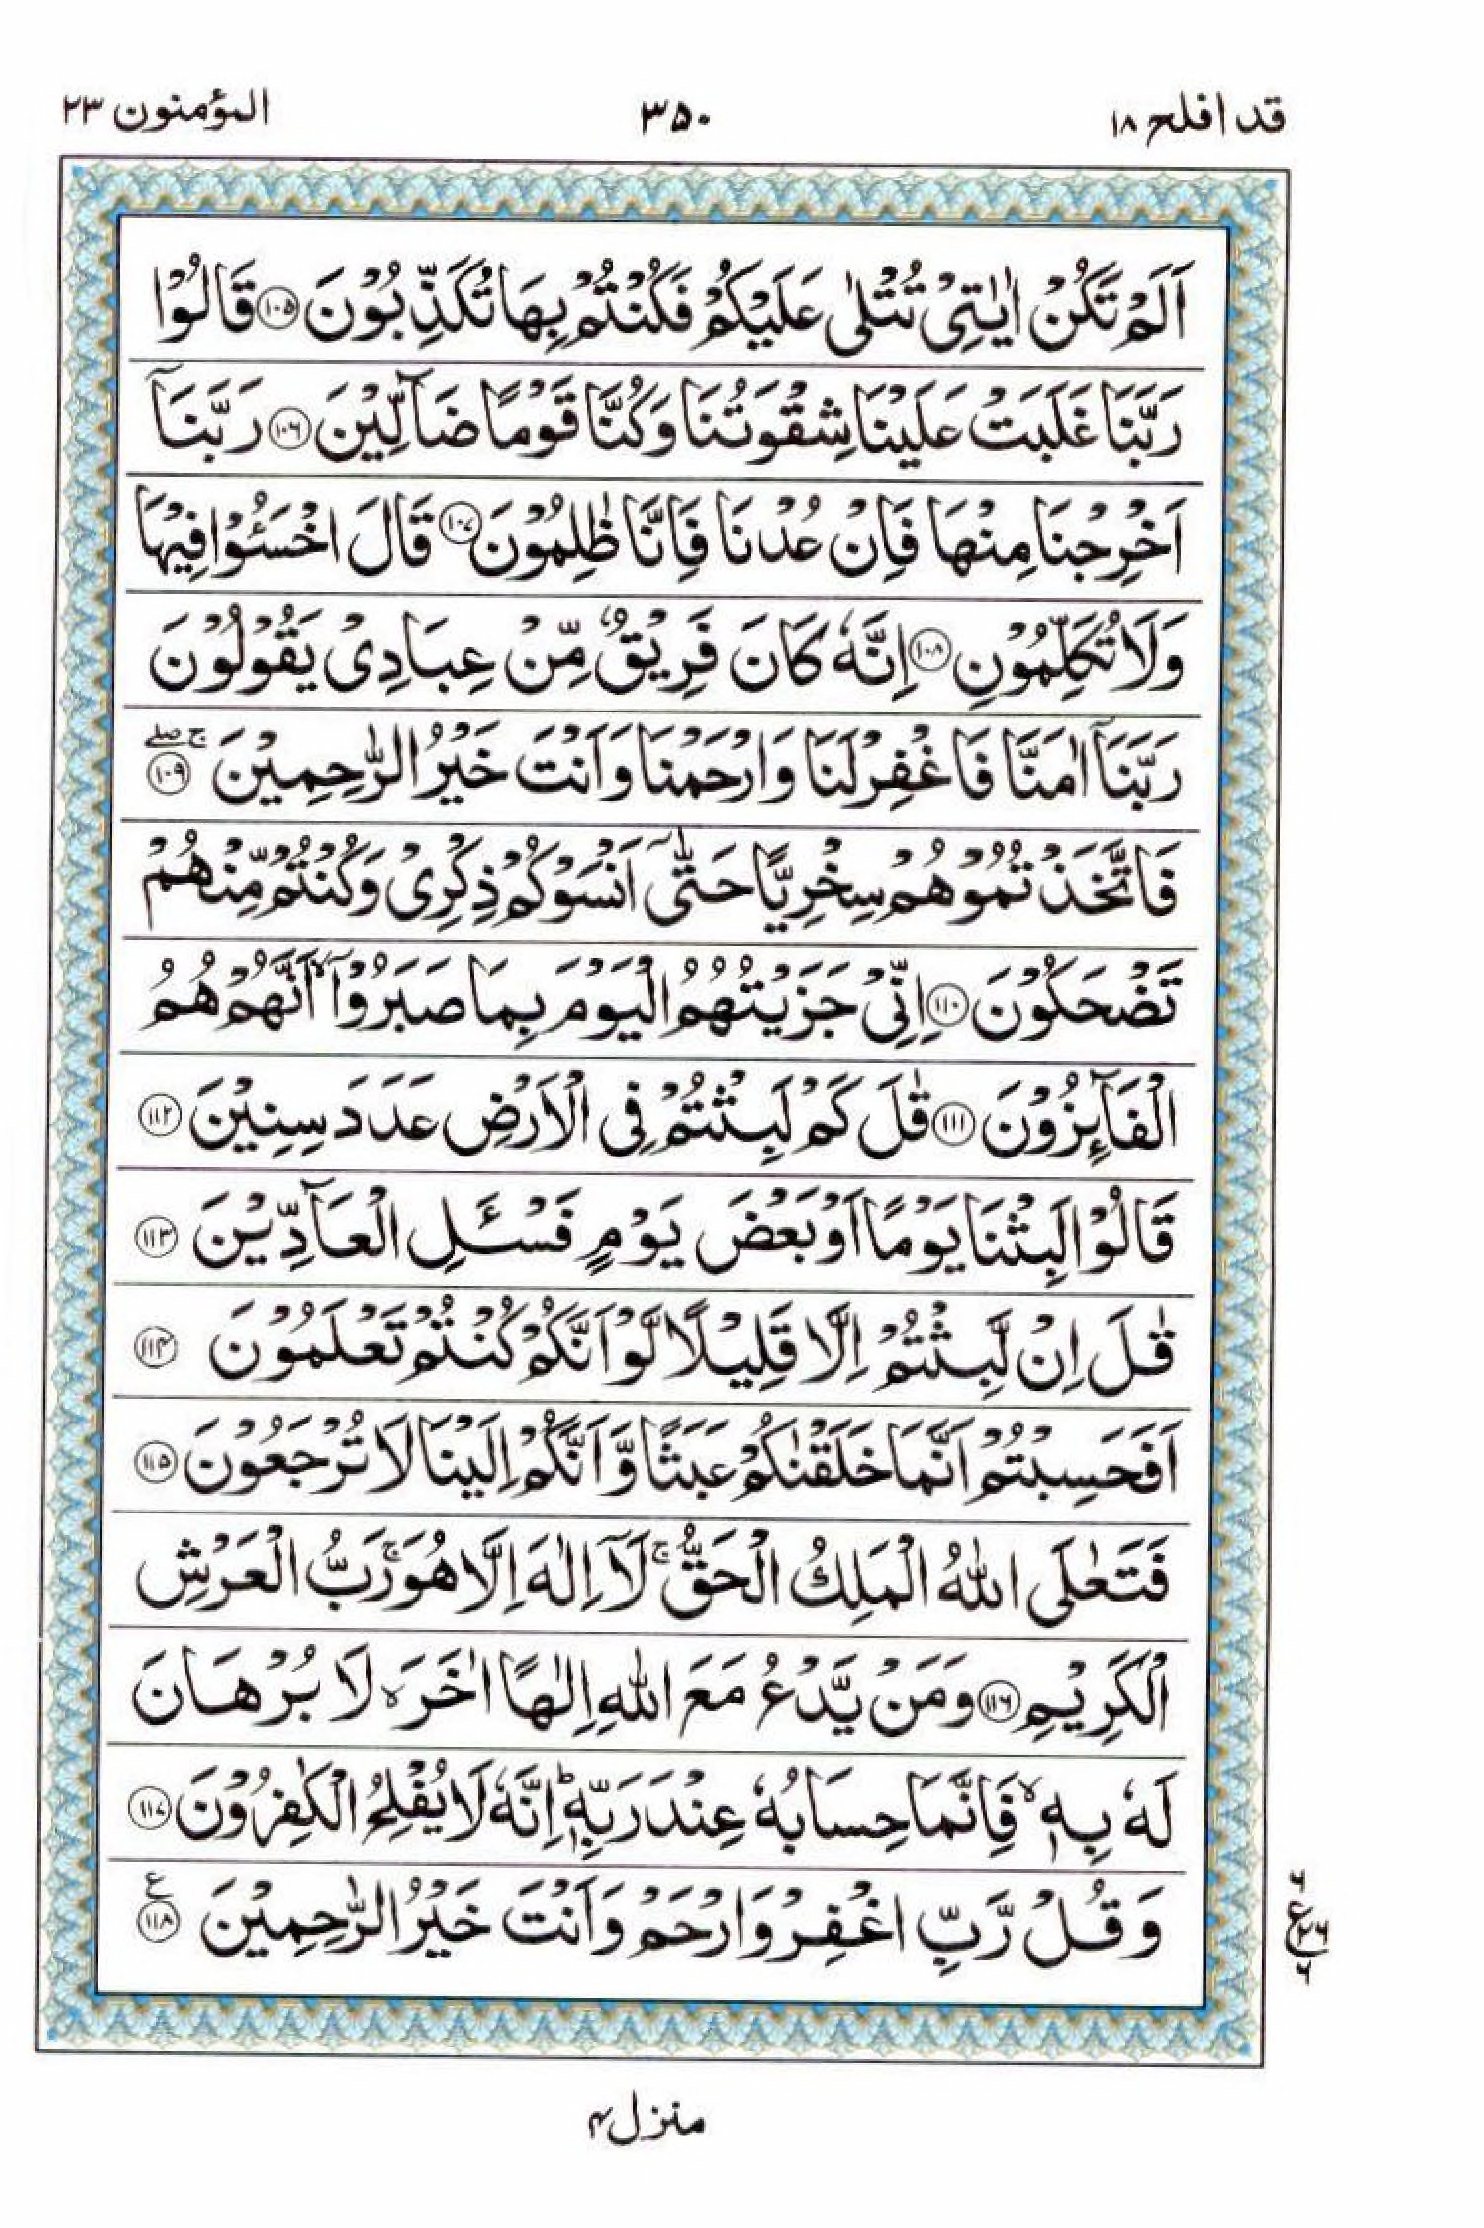 قد افلح ١٨
٣٥٠
المؤمنون ٢٣
اَلَمْ تَكُنْ اٰيٰتِىْ تُتْلٰى عَلَيْكُمْ فَكُنْتُمْ بِهَا تُكَذِّبُوْنَ ۝١٠٥ قَالُوْا
رَبَّنَا غَلَبَتْ عَلَيْنَا شِقْوَتُنَا وَكُنَّا قَوْمًا ضَآلِّيْنَ ۝١٠٦ رَبَّنَآ
اَخْرِجْنَا مِنْهَا فَاِنْ عُدْنَا فَاِنَّا ظٰلِمُوْنَ ۝١٠٧ قَالَ اخْسَـُٔوْا فِيْهَا
وَلَا تُكَلِّمُوْنِ ۝١٠٨ اِنَّهٗ كَانَ فَرِيْقٌ مِّنْ عِبَادِىْ يَقُوْلُوْنَ
رَبَّنَآ اٰمَنَّا فَاغْفِرْ لَنَا وَارْحَمْنَا وَاَنْتَ خَيْرُ الرّٰحِمِيْنَ ۝١٠٩ ۚۖ
فَاتَّخَذْتُمُوْهُمْ سِخْرِيًّا حَتّٰىٓ اَنْسَوْكُمْ ذِكْرِىْ وَكُنْتُمْ مِّنْهُمْ
تَضْحَكُوْنَ ۝١١٠ اِنِّىْ جَزَيْتُهُمُ الْيَوْمَ بِمَا صَبَرُوْٓا ۙ اَنَّهُمْ هُمُ
الْفَآئِزُوْنَ ۝١١١ قٰلَ كَمْ لَبِثْتُمْ فِى الْاَرْضِ عَدَدَ سِنِيْنَ ۝١١٢
قَالُوْا لَبِثْنَا يَوْمًا اَوْ بَعْضَ يَوْمٍ فَسْـَٔلِ الْعَآدِّيْنَ ۝١١٣
قٰلَ اِنْ لَّبِثْتُمْ اِلَّا قَلِيْلًا لَّوْ اَنَّكُمْ كُنْتُمْ تَعْلَمُوْنَ ۝١١٤
اَفَحَسِبْتُمْ اَنَّمَا خَلَقْنٰكُمْ عَبَثًا وَّاَنَّكُمْ اِلَيْنَا لَا تُرْجَعُوْنَ ۝١١٥
فَتَعٰلَى اللّٰهُ الْمَلِكُ الْحَقُّ ۚ لَآ اِلٰهَ اِلَّا هُوَ ۚ رَبُّ الْعَرْشِ
الْكَرِيْمِ ۝١١٦ وَمَنْ يَّدْعُ مَعَ اللّٰهِ اِلٰهًا اٰخَرَ ۙ لَا بُرْهَانَ
لَهٗ بِهٖ ۙ فَاِنَّمَا حِسَابُهٗ عِنْدَ رَبِّهٖ ؕ اِنَّهٗ لَا يُفْلِحُ الْكٰفِرُوْنَ ۝١١٧
وَقُلْ رَّبِّ اغْفِرْ وَارْحَمْ وَاَنْتَ خَيْرُ الرّٰحِمِيْنَ ۝١١٨ ع
ع
منزل ٤